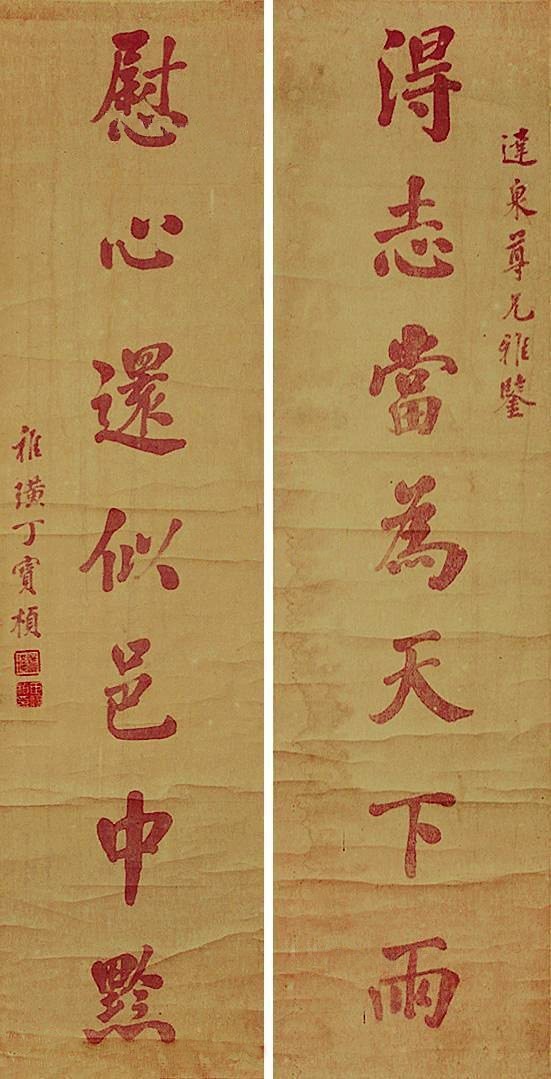 達泉尊兄雅鑒
得志當為天下雨
慰心還似邑中黔
稚璜丁寶楨